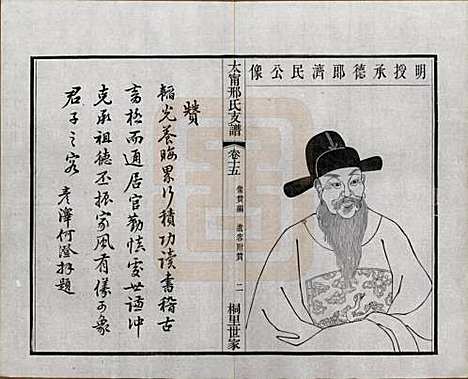 明授承德郎濟民公像
太甯邢氏支譜
卷十五
像贊編
遺容附贊
二
桐里世家
贊
韜光養晦累行積功讀書稽古
當檢而通居官勤慎處世謙沖
克承祖德丕振家風有儀可象
君子之容
彥澤何澄拜題